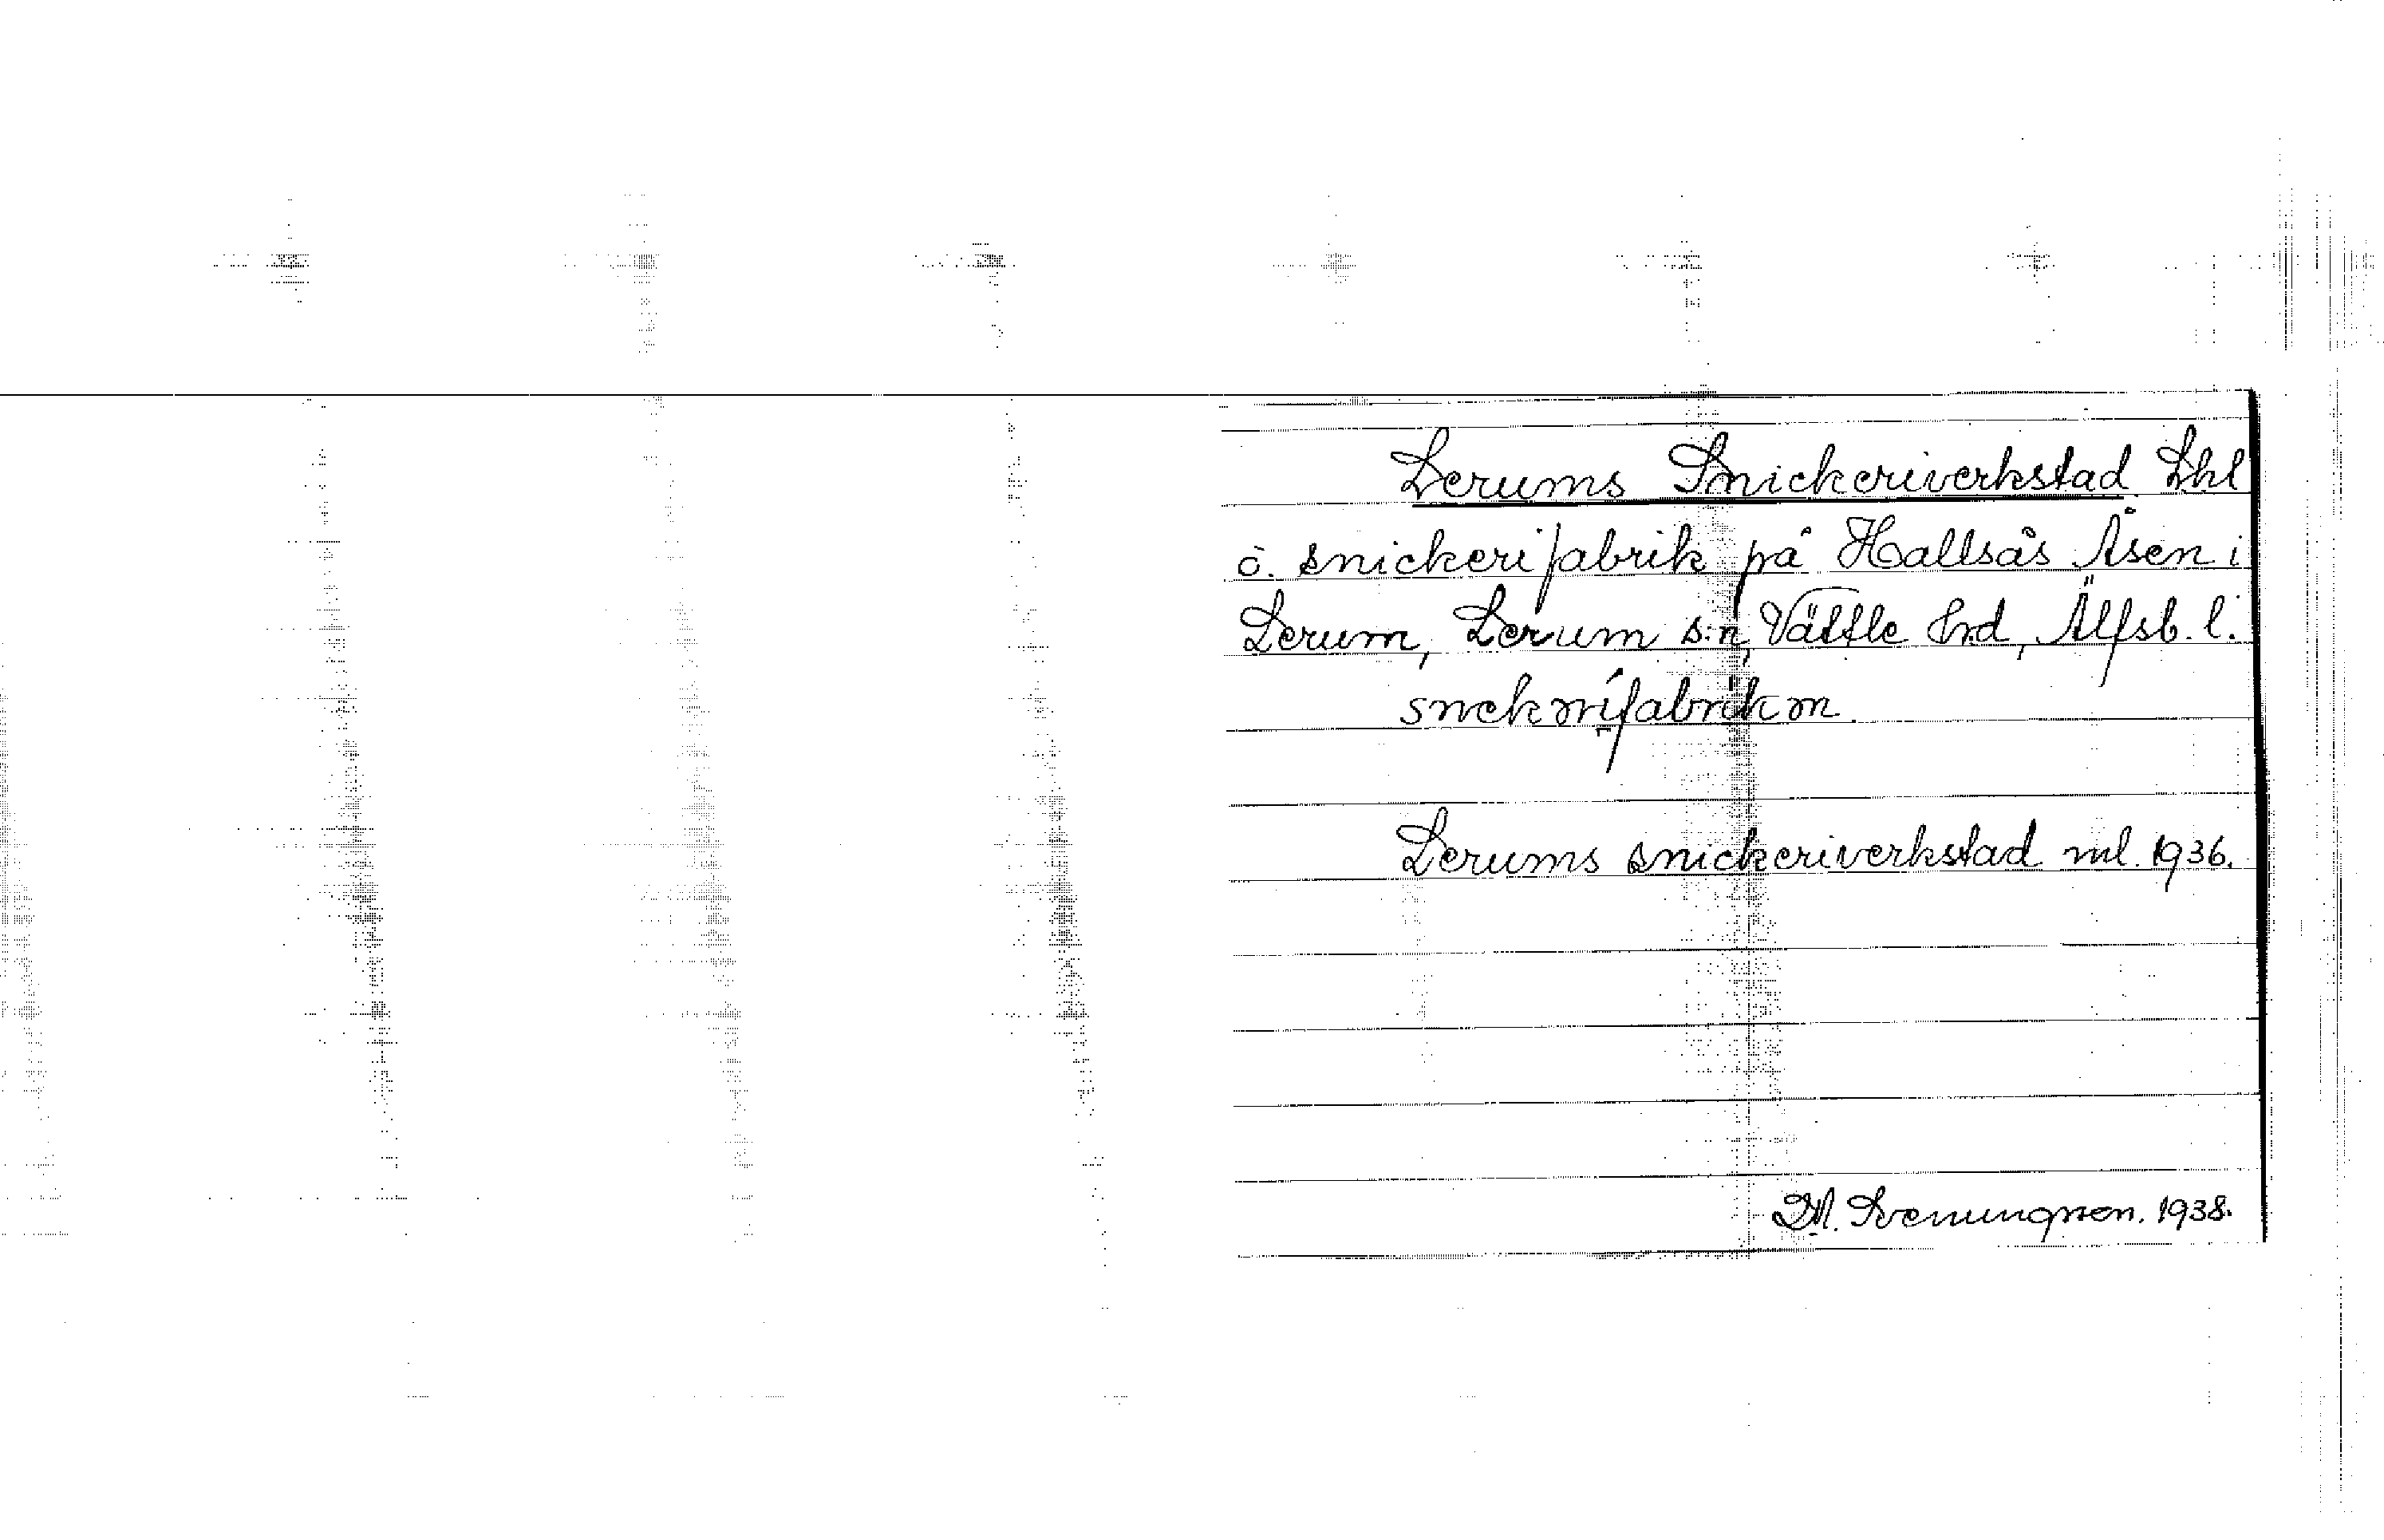 Lerums Snickeriverkstad Lhl
ö. snickerifabrik på Hallsås Åsen i
Lerum, Lerum s:n, Vättle Hrd, Älfsb. l.
Lerums snickeriverkstad ml. 1936.
M. Svenungsson. 1938.